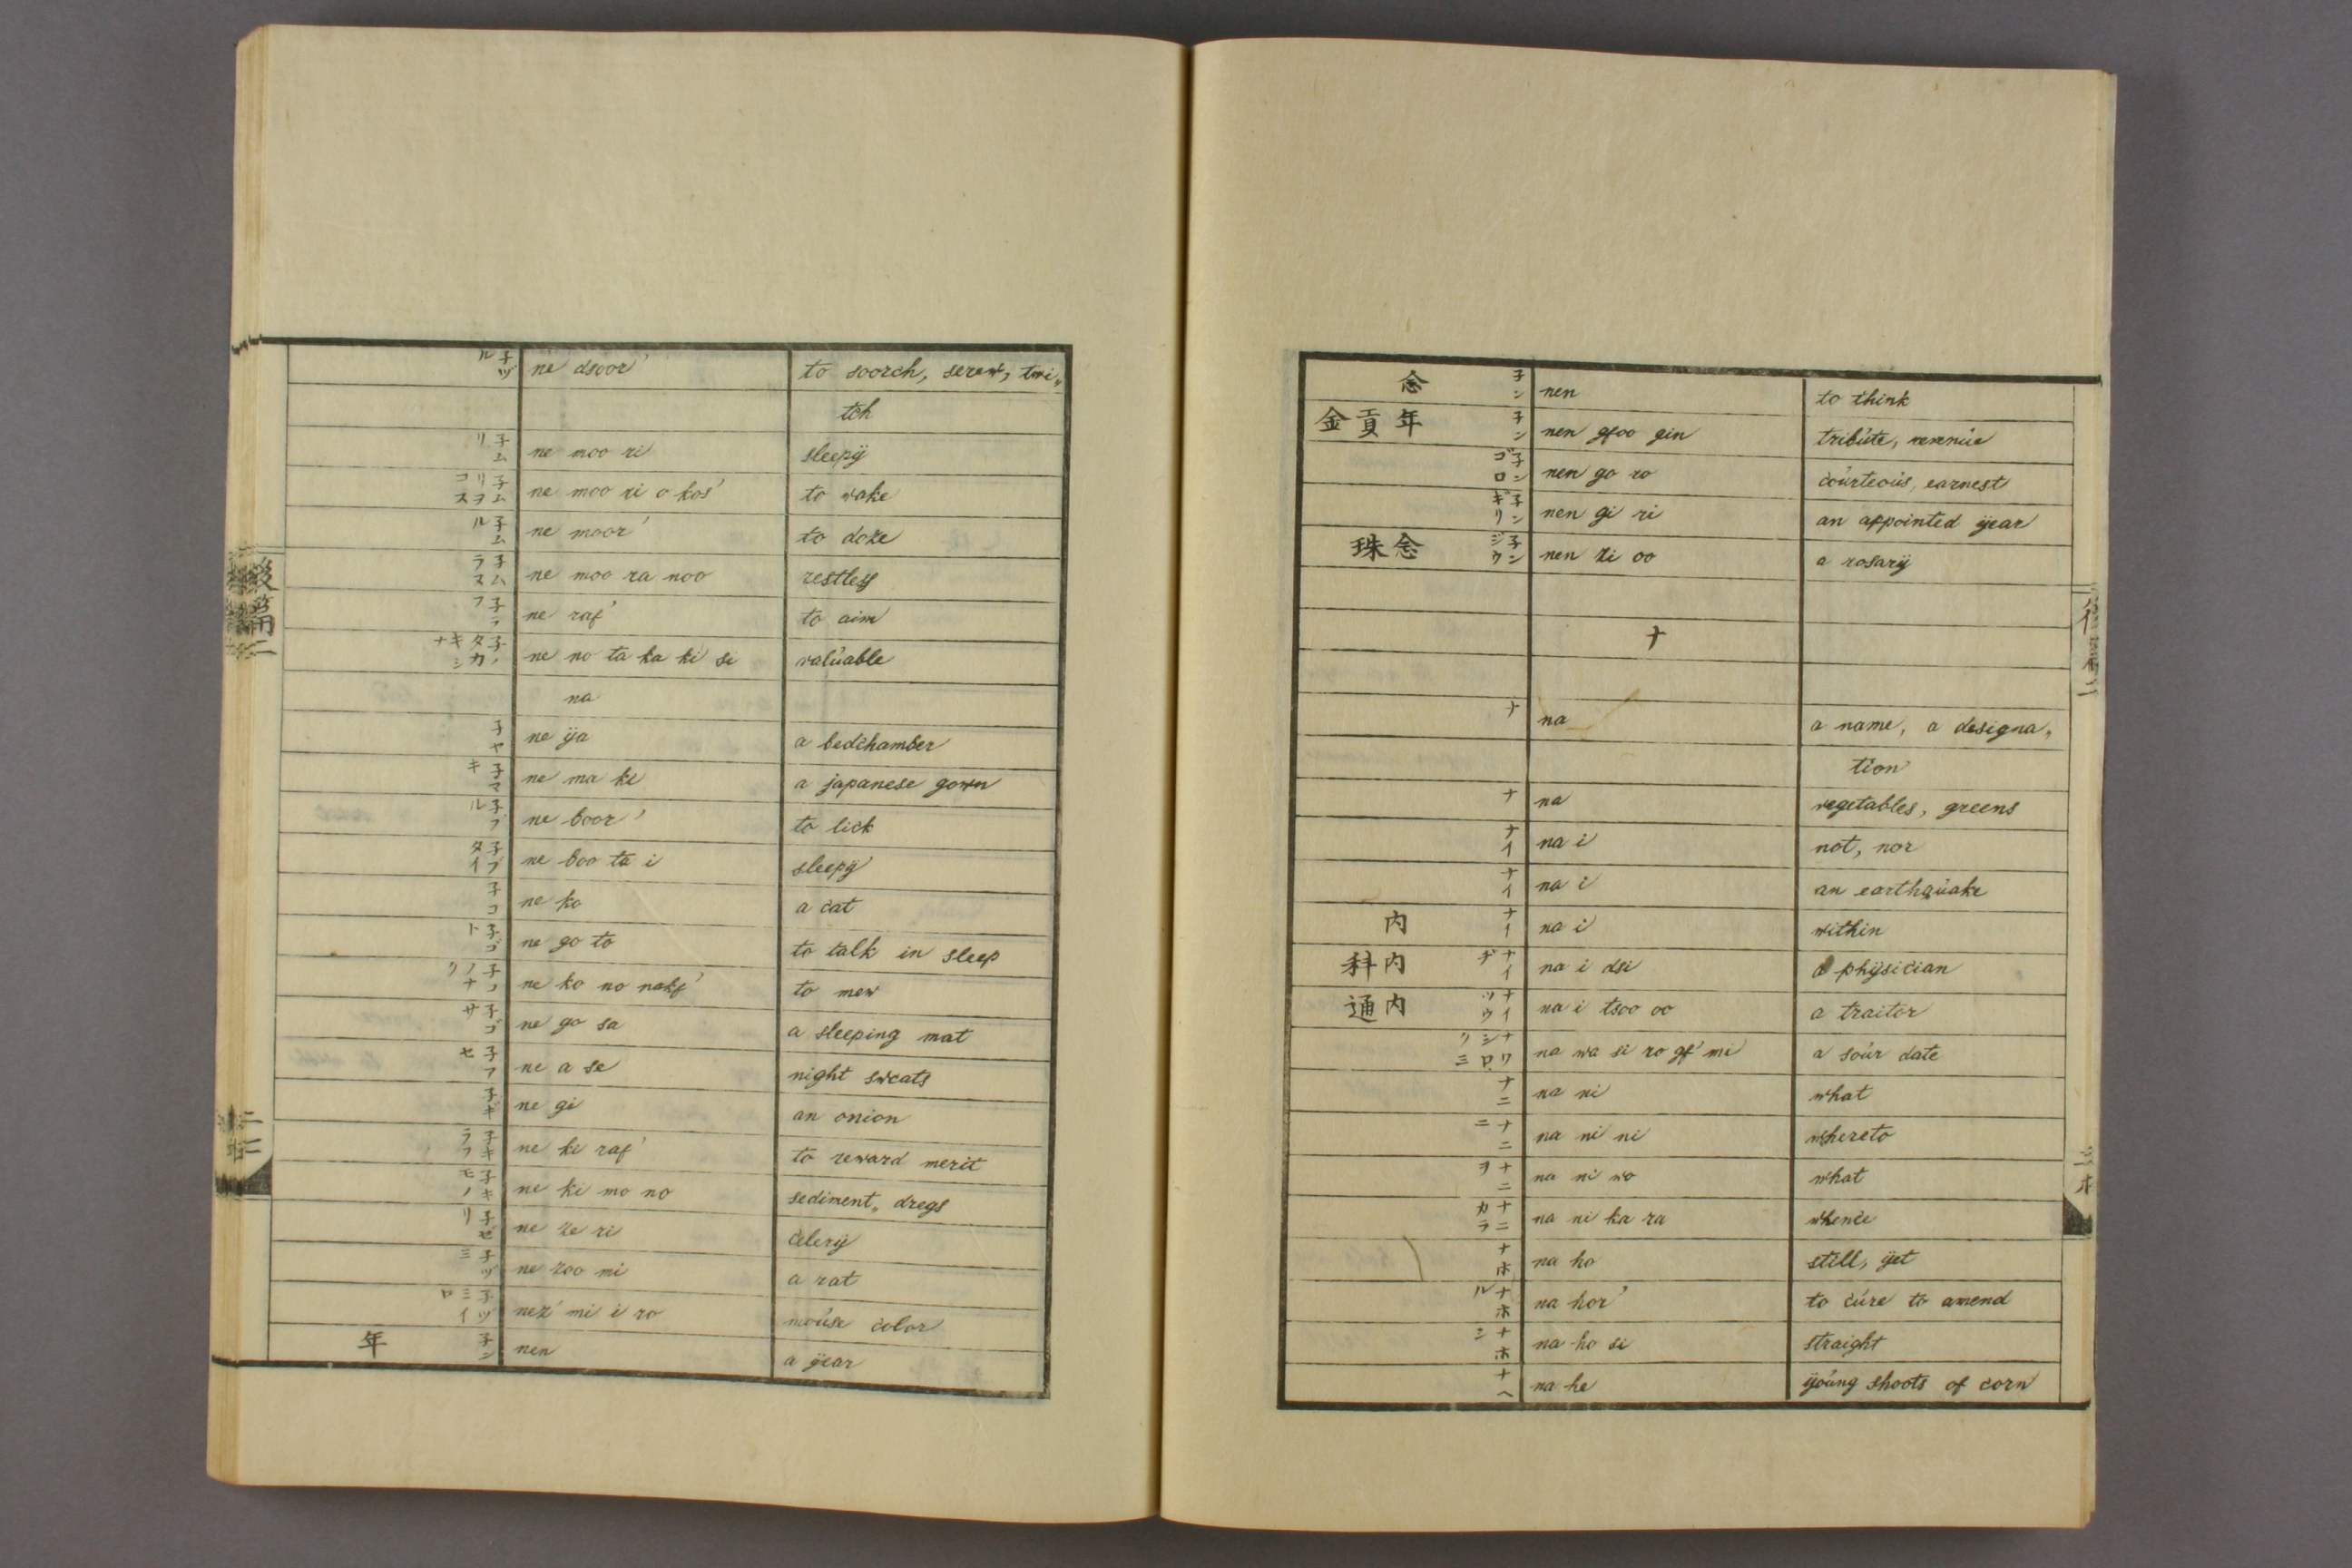 子ヅル ne dsoor' to scorch, screw, twi„
tch
子ムリ ne moo ri sleepÿ
子ムリヲコス ne moo ri o kos' to wake
子ムル ne moor' to doze
子ムラヌ ne moo ra noo restless
子ラフ ne raf' to aim
子ノタカキシナ ne no ta ka ki si valuable
na
子ヤ ne ÿa a bedchamber
子マキ ne ma ki a japanese gown
子ブル ne boor' to lick
子ブタイ ne boo ta i sleepÿ
子コ ne ko a cat
子ゴト ne go to to talk in sleep
ne ko no nakf' to mew
子ゴサ ne go sa a sleeping mat
子アセ ne a se night sweats
子ギ ne gi an onion
子キラフ ne ki raf' to reward merit
子キモノ ne ki mo no sediment„ dregs
子ゼリ ne ze ri celerÿ
子ヅミ ne zoo mi a rat
子ヅミイロ nez' mi i ro mouse color
年 子ン nen a ÿear
念 子ン nen to think
年貢金 子ン nen gfoo gin tribute, revenue
子ンゴロ nen go ro courteous, earnest
子ンギリ nen gi ri an appointed ÿear
念珠 子ンジウ nen zi oo a rosarÿ
ナ
ナ na a name, a designa„
tion
ナ na vegetables, greens
ナイ na i not, nor
ナイ na i an earthquake
内 ナイ na i within
内科 ナイヂ na i dsi a phÿsician
内通 ナイツウ na i tsoo oo a traitor
ナワシログミ na wa si ro gf' mi a sour date
ナニ na ni what
ナニニ na ni ni whereto
ナニヲ na ni wo what
ナニカラ na ni ka ra whence
ナホ na ho still, ÿet
ナホル na hor' to cure to amend
ナホシ na ho si straight
ナヘ na he ÿoung shoots of corn